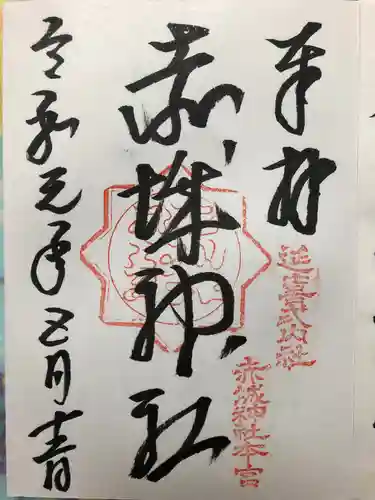 奉拝
延喜式内社
赤城神社本宮
赤城神社
令和元年五月十一日